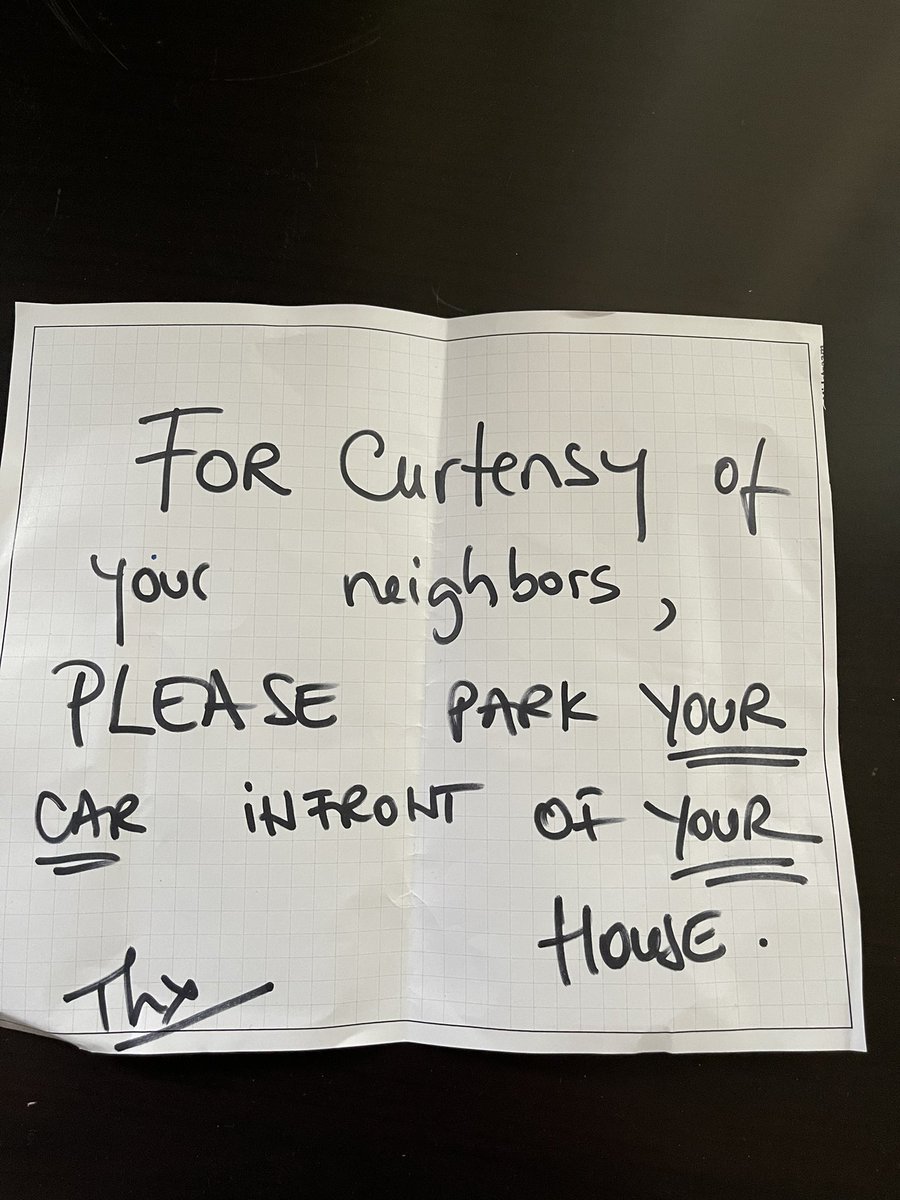 FOR Curtensy of
your neighbors,
PLEASE PARK YOUR
CAR iNFRONT OF YOUR
HOUSE.
Thx